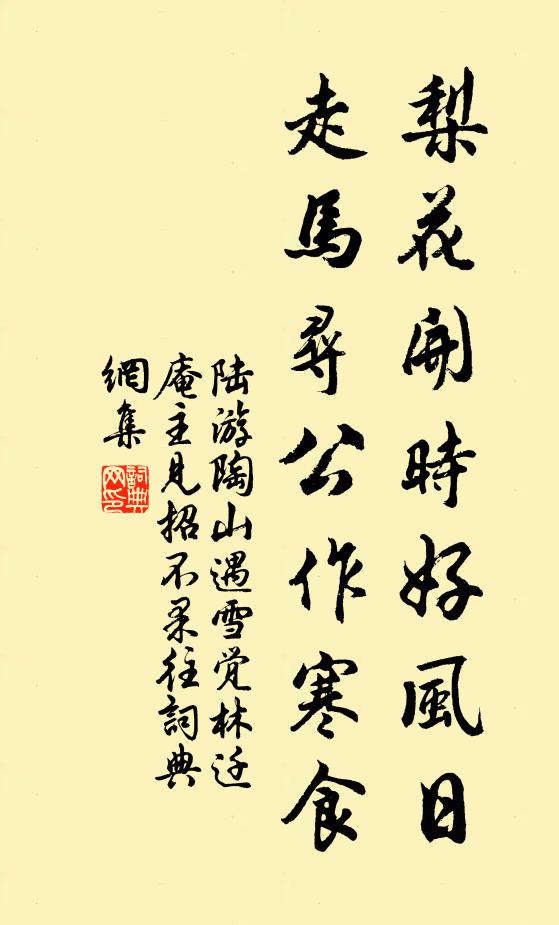 梨花開時好風日
走馬尋公作寒食
陆游陶山遇雪觉林迁
庵主見招不果往詞典
網集
詞典
网印